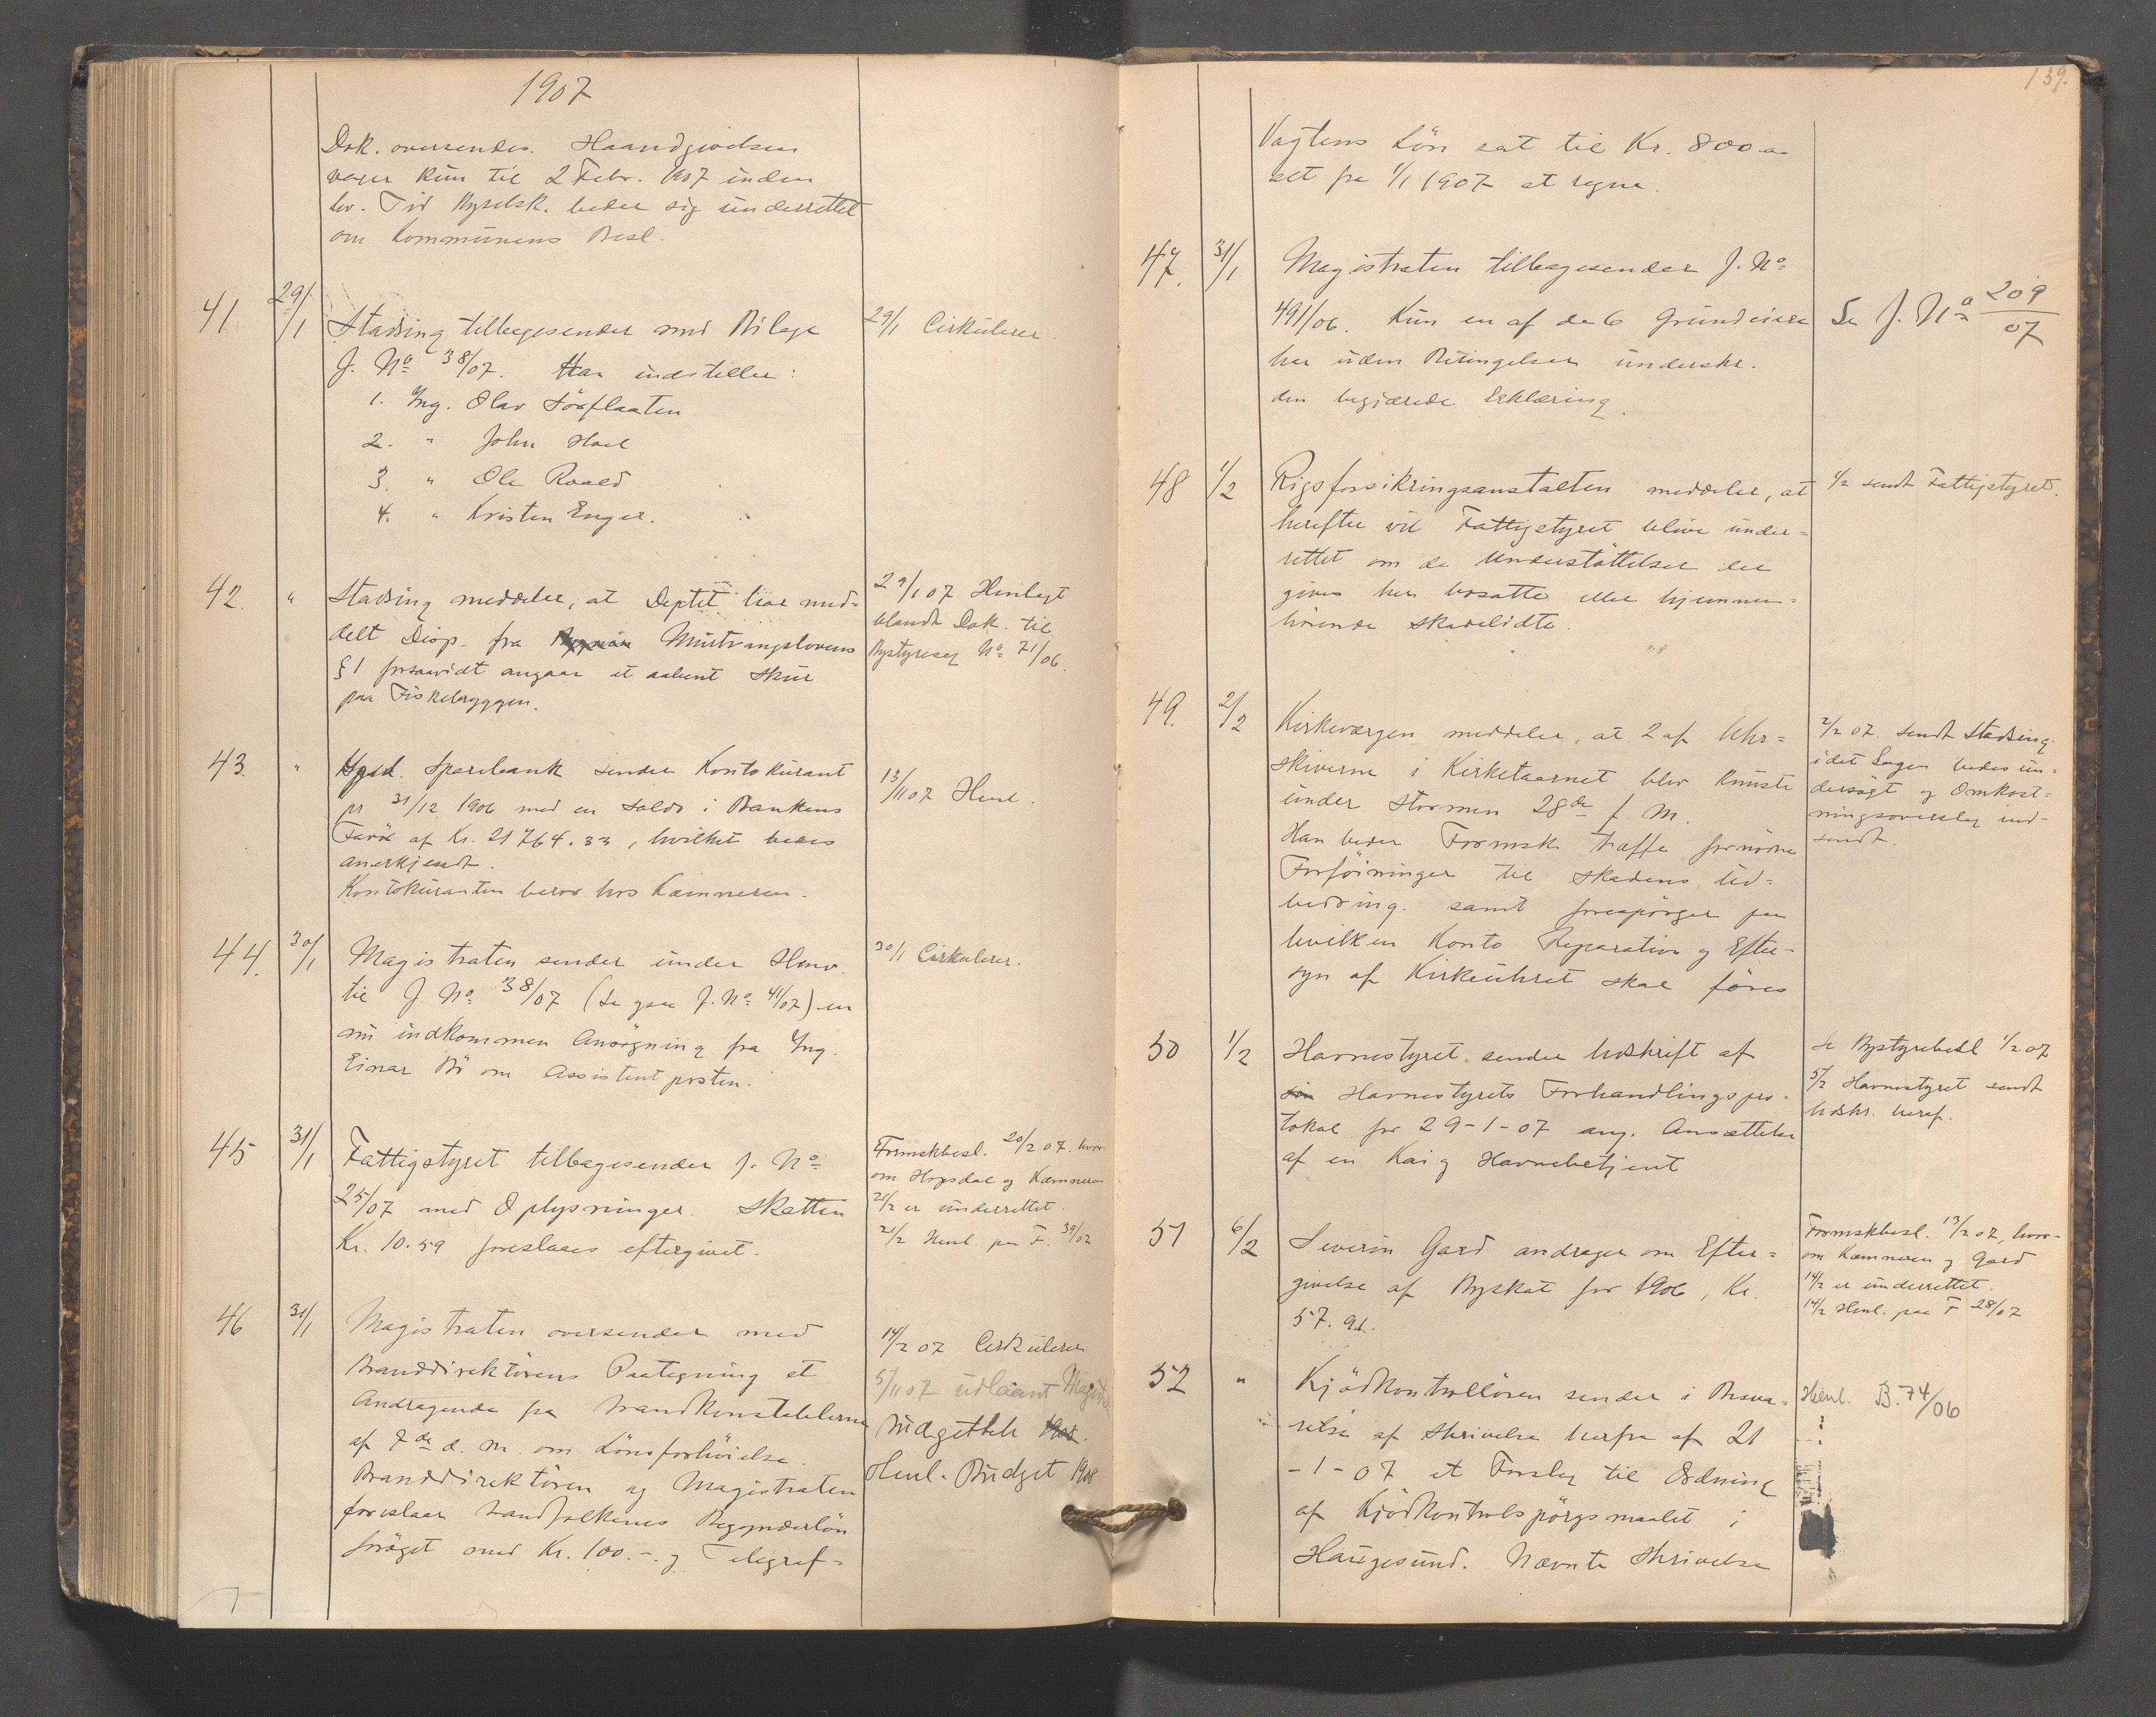 1907
Dok. oversendes. Haandgivelsen
varer kun til 2 Febr. 1907 inden
hv. Tid Byselsk. beder sig underrettet
om Kommunens Besl.
41 29/1 Stadsing tilbagesender med Bilage
J. No 38/07. Han indstiller:
1. Ing. Olav Sörflaaten
2. " John Hoel
3. " Ole Raaed
4. " Kristen Enger.
29/1 Cirkulerer.
42. " Stadsing meddeler, at Deptet har med-
delt Disp. fra Murtvangslovens
§ 1 forsaavidt angaar et aabent Skur
paa Fiskebryggen.
29/1 07 Henlagt
blandt Dok. til
Bystyresag No 71/06.
43. " Hgsd. Sparebank sender Kontokurant
pr. 31/12 1906 med en Saldo i Bankens
Favör af Kr. 21764.33, hvilket bedes
anerkjendt.
Kontokuranten beror hos Kæmneren.
13/11 07 Henl.
44. 30/1 Magistraten sender under Henv.
til J. No 38/07 (Se ogsaa J. No 41/07) en
nu indkommen Ansögning fra Ing.
Einar Bö om Assistentposten.
30/1 Cirkulerer.
45 31/1 Fattigstyret tilbagesender J. No
25/07 med Oplysninger. Skatten
Kr. 10.59 foreslaaes eftergivet.
Formskbesl. 20/2 07. hvor-
om Hogsdal og Kæmneren
21/2 er underrettet.
21/2 Henl. paa F. 39/07
46 31/1 Magistraten oversender med
Branddirektörens Paategning et
Andragende fra Brandkonstablerne
af 7de d. M. om Lönsforhöielse.
Branddirektören og Magistraten
foreslaar Brandfolkenes Begynderlön
foröget med Kr. 100.- og Telegraf-
14/2 07 Cirkulerer
5/11 07 udlaant Magistr.
Budgettet 1908.
Henl. Budget 1908
139.
Vagtens Lön sat til Kr. 800 -
alt fra 1/1 1907 at regne.
47. 31/1 Magistraten tilbagesender J. No
491/06. Kun en af de 6 Grundeiere
har uden Betingelser underskr.
den begjærede Erklæring.
Se J. No 209/07
48 1/2 Rigsforsikringsanstalten meddeler, at
herefter vil Fattigstyret blive under-
rettet om de Understöttelser der
gives her bosatte eller hjemme-
hörende skadelidte.
1/2 sendt Fattigstyret.
49. 2/2 Kirkeværgen meddeler, at 2 af Uhr-
skiverne i Kirketaarnet blev knuste
under Stormen 28de f. M.
Han beder Formsk. træffe fornödne
Forföininger til Skadens Ud-
bedring. samt forespörger paa
hvilken Konto Reparation og Efter-
syn af Kirkeuhret skal föres
2/2 07. sendt Stadsing.
idet Sagen bedes un-
dersögt og Omkost-
ningsoverslag ind-
sendt.
50 1/2 Havnestyret sender Udskrift af
Havnestyrets Forhandlingspro-
tokol for 29-1-07 ang. Ansættelse
af en Kai og Havnebetjent
Se Bystyrebesl 1/2 07
5/2 Havnestyret sendt
Udskr. heraf.
51 6/2 Severin Gard andrager om Efter-
givelse af Byskat for 1906, Kr.
57.
Formskbesl. 13/2 07, hvor-
om Kæmneren og Gard
14/2 er underrettet.
14/2 Henl. paa F 28/07
52 " Kjödkontrollören sender i Besva-
relse af Skrivelse herfra af 21
-1-07 et Forslag til Ordning
af Kjödkontrolspörgsmaalet i
Haugesund. Nævnte Skrivelse
Henl. B. 74/06